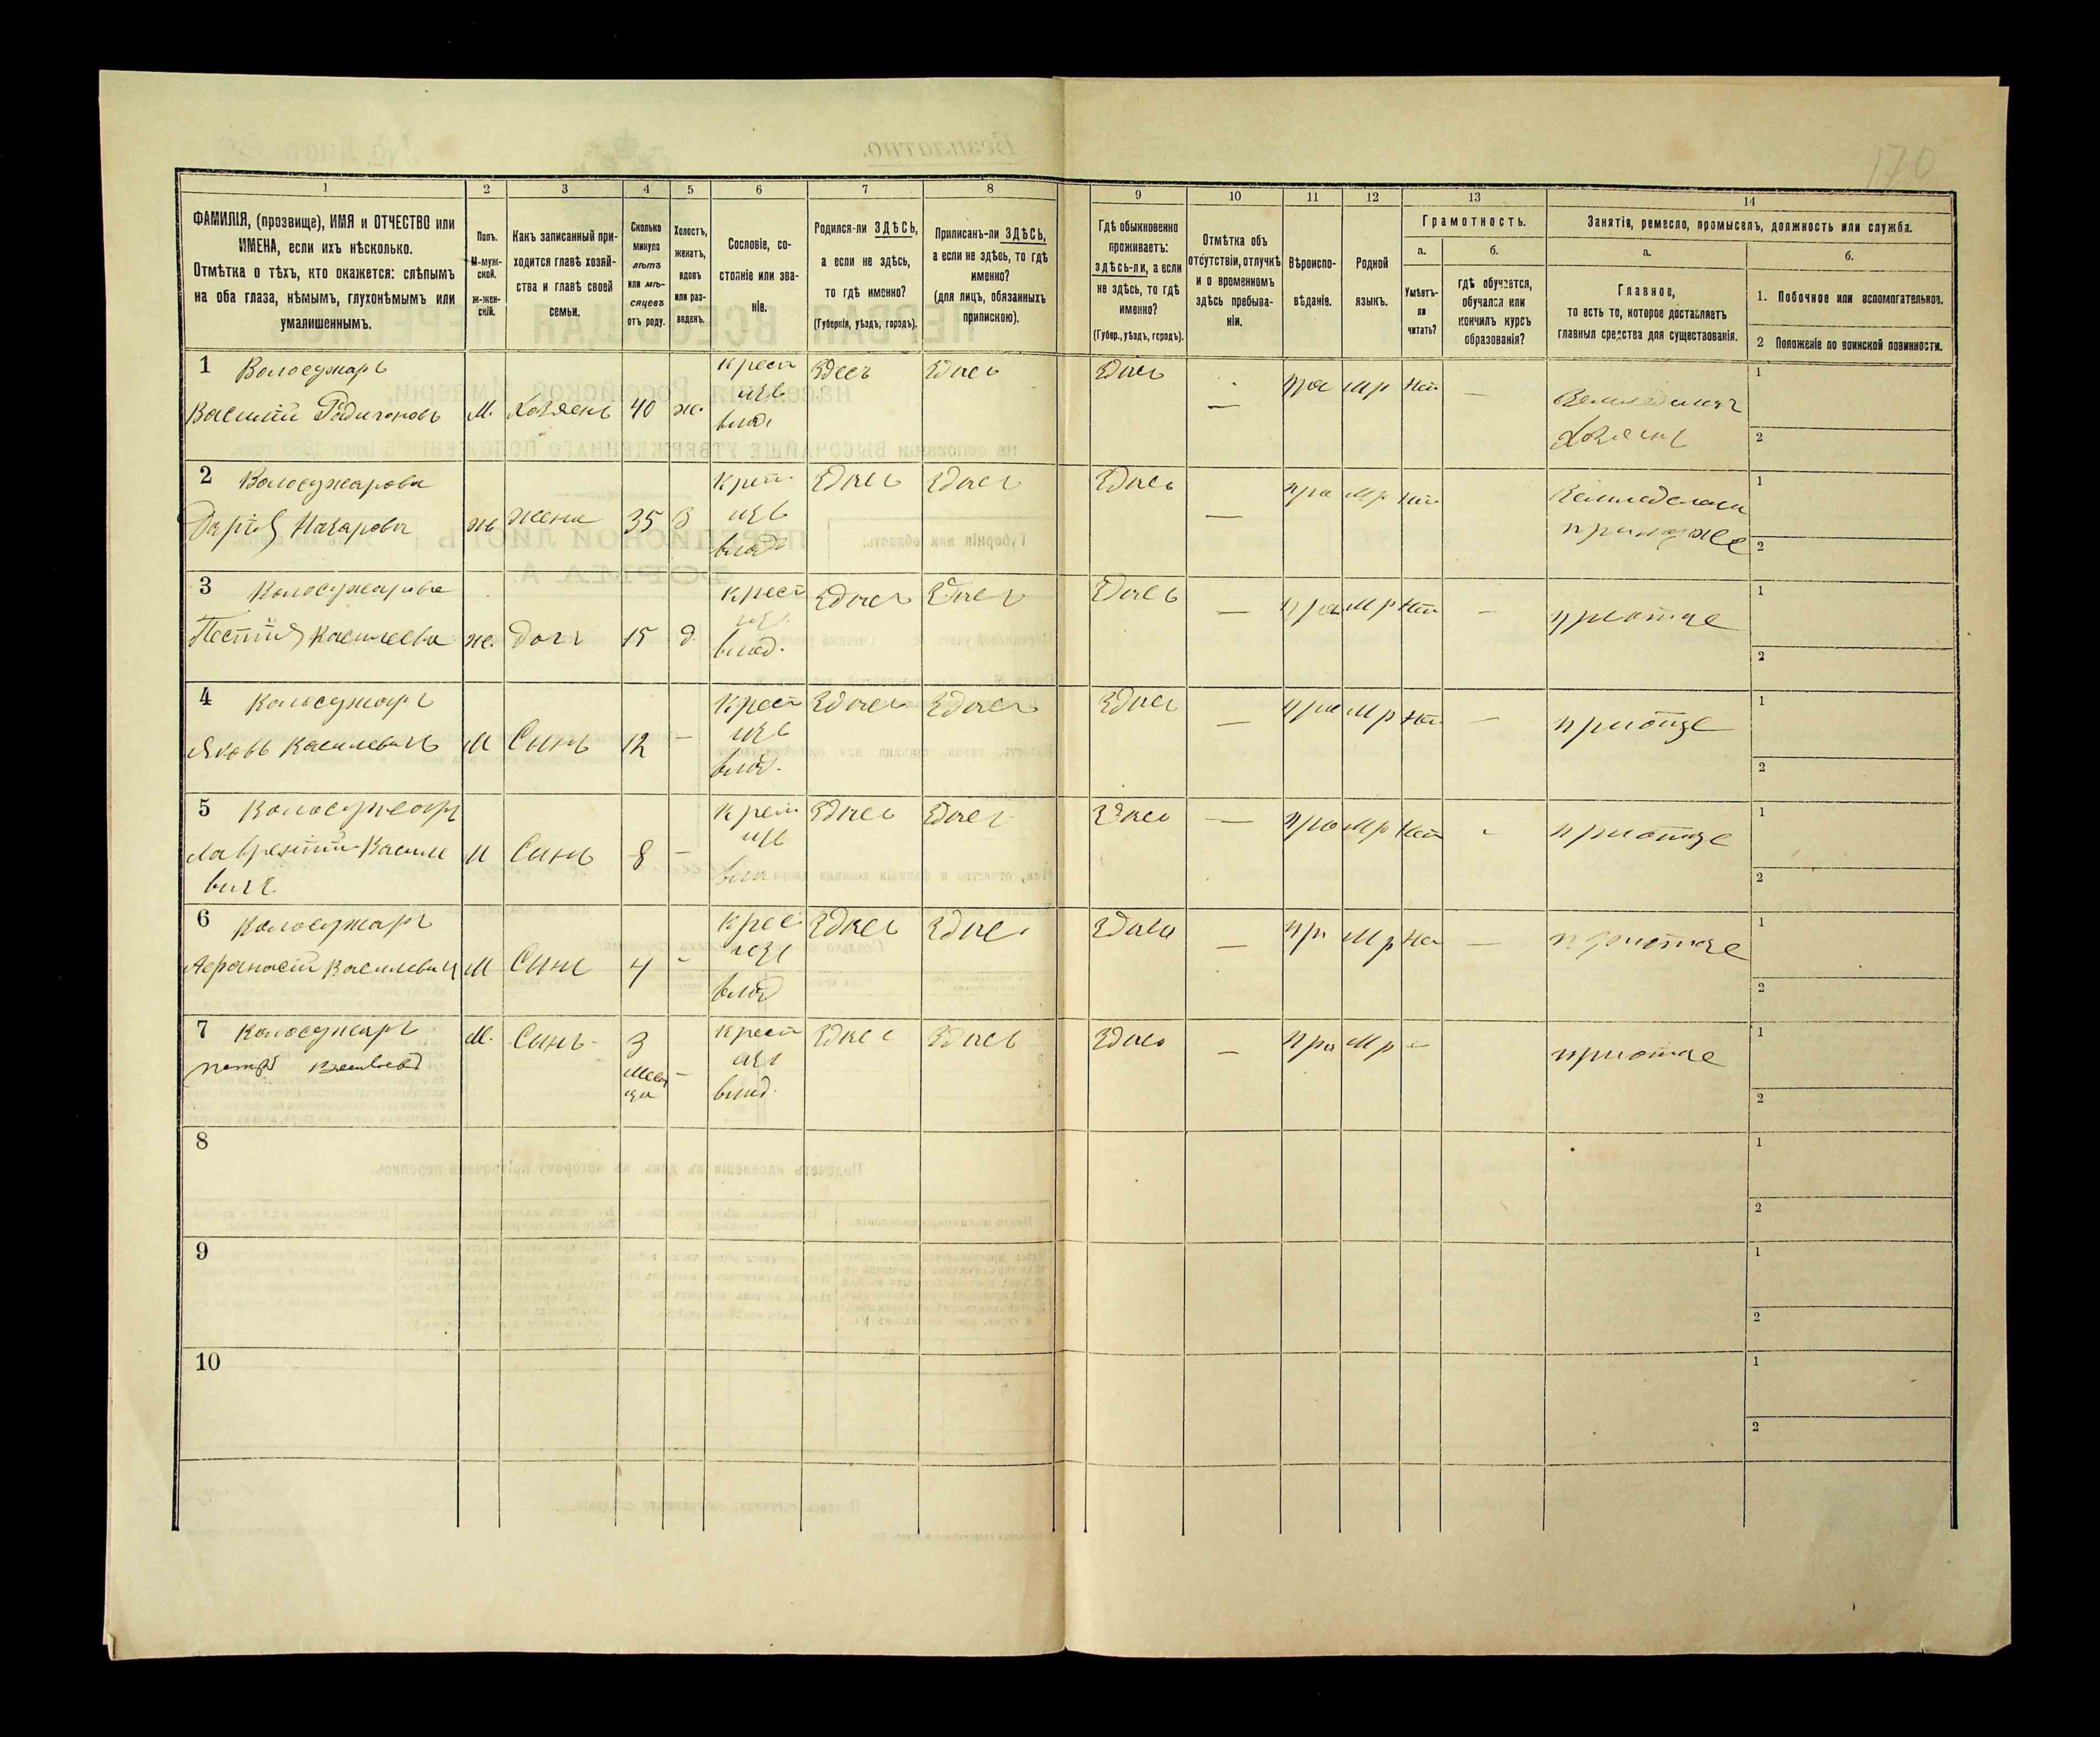 170
1 2 3 4 5 6 7 8 9 10 11 12 13 14
ФАМИЛІЯ, (прозвище), ИМЯ и ОТЧЕСТВО или
ИМЕНА, если ихъ нѣсколько.
Отмѣтка о тѣхъ, кто окажется: слѣпымъ
на оба глаза, нѣмымъ, глухонѣмымъ или
умалишеннымъ.
Полъ.
М-муж-
ской.
ж-жен-
скій.
Какъ записанный при-
ходится главѣ хозяй-
ства и главѣ своей
семьи.
Сколько
минуло
лѣтъ
или мѣ-
сяцевъ
отъ роду.
Холостъ,
женатъ,
вдовъ
или раз-
веденъ.
Сословіе, со-
стояніе или зва-
ніе.
Родился-ли ЗДѢСЬ,
а если не здѣсь,
то гдѣ именно?
(Губернія, уѣздъ, городъ).
Приписанъ-ли ЗДѢСЬ,
а если не здѣсь, то гдѣ
именно?
(для лицъ, обязанныхъ
припискою).
Гдѣ обыкновенно
проживаетъ:
здѣсь-ли, а если
не здѣсь, то гдѣ
именно?
(Губер., уѣздъ, городъ).
Отмѣтка объ
отсутствіи, отлучкѣ
и о временномъ
здѣсь пребыва-
ніи.
Вѣроиспо-
вѣданіе.
Родной
языкъ.
Грамотность.
а. б.
Умѣетъ-
ли
читать?
гдѣ обучается,
обучался или
кончилъ курсъ
образованія?
Занятія, ремесло, промыселъ, должность или служба.
а. б.
Главное,
то есть то, которое доставляетъ
главныя средства для существованія.
1. Побочное или вспомогательное.
2 Положеніе по воинской повинности.
1 Волосужаръ
Василій М. Хозяенъ 40 ж. Крест изъ влад. Здесь Здись Здись — пра Мр Нет — 1 2
2 Волосужарова
Дарія Назарова ж жена 35 З Крест. изъ влад Здись Здись Здись — пра Мр Нет 1 2
3 Волосужарова
Василева ж. дочь 15 д. Крест изъ влад. Здись Здись Здись — пра Мр Нет — приотце 1 2
4 Волосужаръ
Яковъ Василевичъ М Синъ 12 — Крест изъ влад. Здись Здись Здись — пра Мр Нет — приотце 1 2
5 Волосужаръ
Лаврентій Василе
вичъ М Синъ 8 — Крест изъ Здись Здись Здись — пра Мр Нет - приотце 1 2
6 Волосужаръ
Афанасій Василевич М Синъ 4 - Крес изъ влад Здись Здись Здись — пр Мр Не — приотце 1 2
7 Волосужаръ
петръ М. Синъ 3 месяца — Крест изъ влад. Здись Здись Здись — пра Мр — приотце 1 2
8 1 2
9 1 2
10 1 2